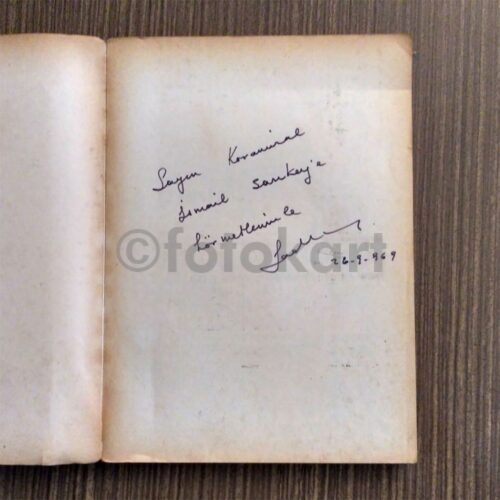 Sayın Koramiral
İsmail Sarıkey'e
hürmetlerimle
26-9-969
©fotokart